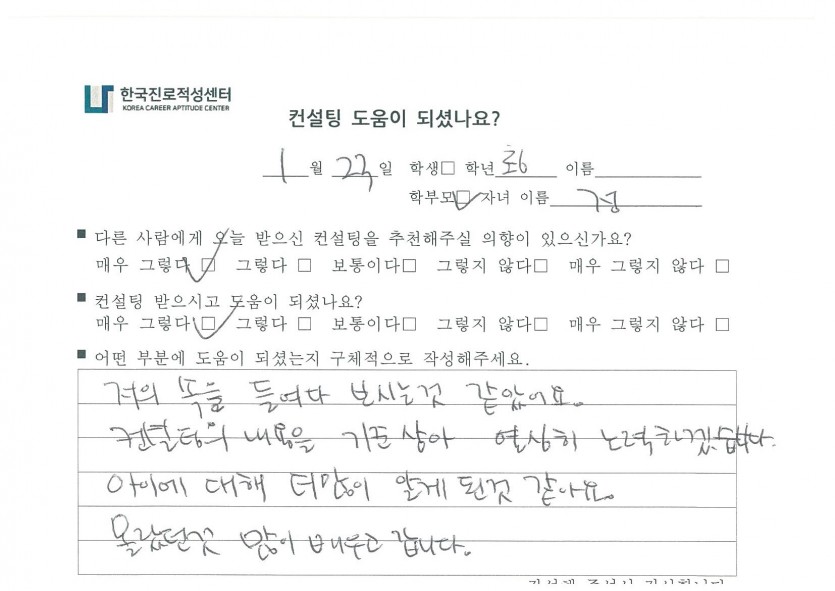 한국진로적성센터
KOREA CAREER APTITUDE CENTER
컨설팅 도움이 되셨나요?
1월 23일 학생□ 학년 초6 이름
학부모☑ 자녀 이름
■ 다른 사람에게 오늘 받으신 컨설팅을 추천해주실 의향이 있으신가요?
매우 그렇다 ☑ 그렇다 □ 보통이다□ 그렇지 않다□ 매우 그렇지 않다 □
■ 컨설팅 받으시고 도움이 되셨나요?
매우 그렇다☑ 그렇다 □ 보통이다□ 그렇지 않다□ 매우 그렇지 않다 □
■ 어떤 부분에 도움이 되셨는지 구체적으로 작성해주세요.
저의 속을 들여다 보시는것 같았어요.
컨설팅의 내용을 기준삼아 열심히 노력하겠습니다.
아이에 대해 더많이 알게 된것 같아요.
몰랐던것 많이 배우고 갑니다.